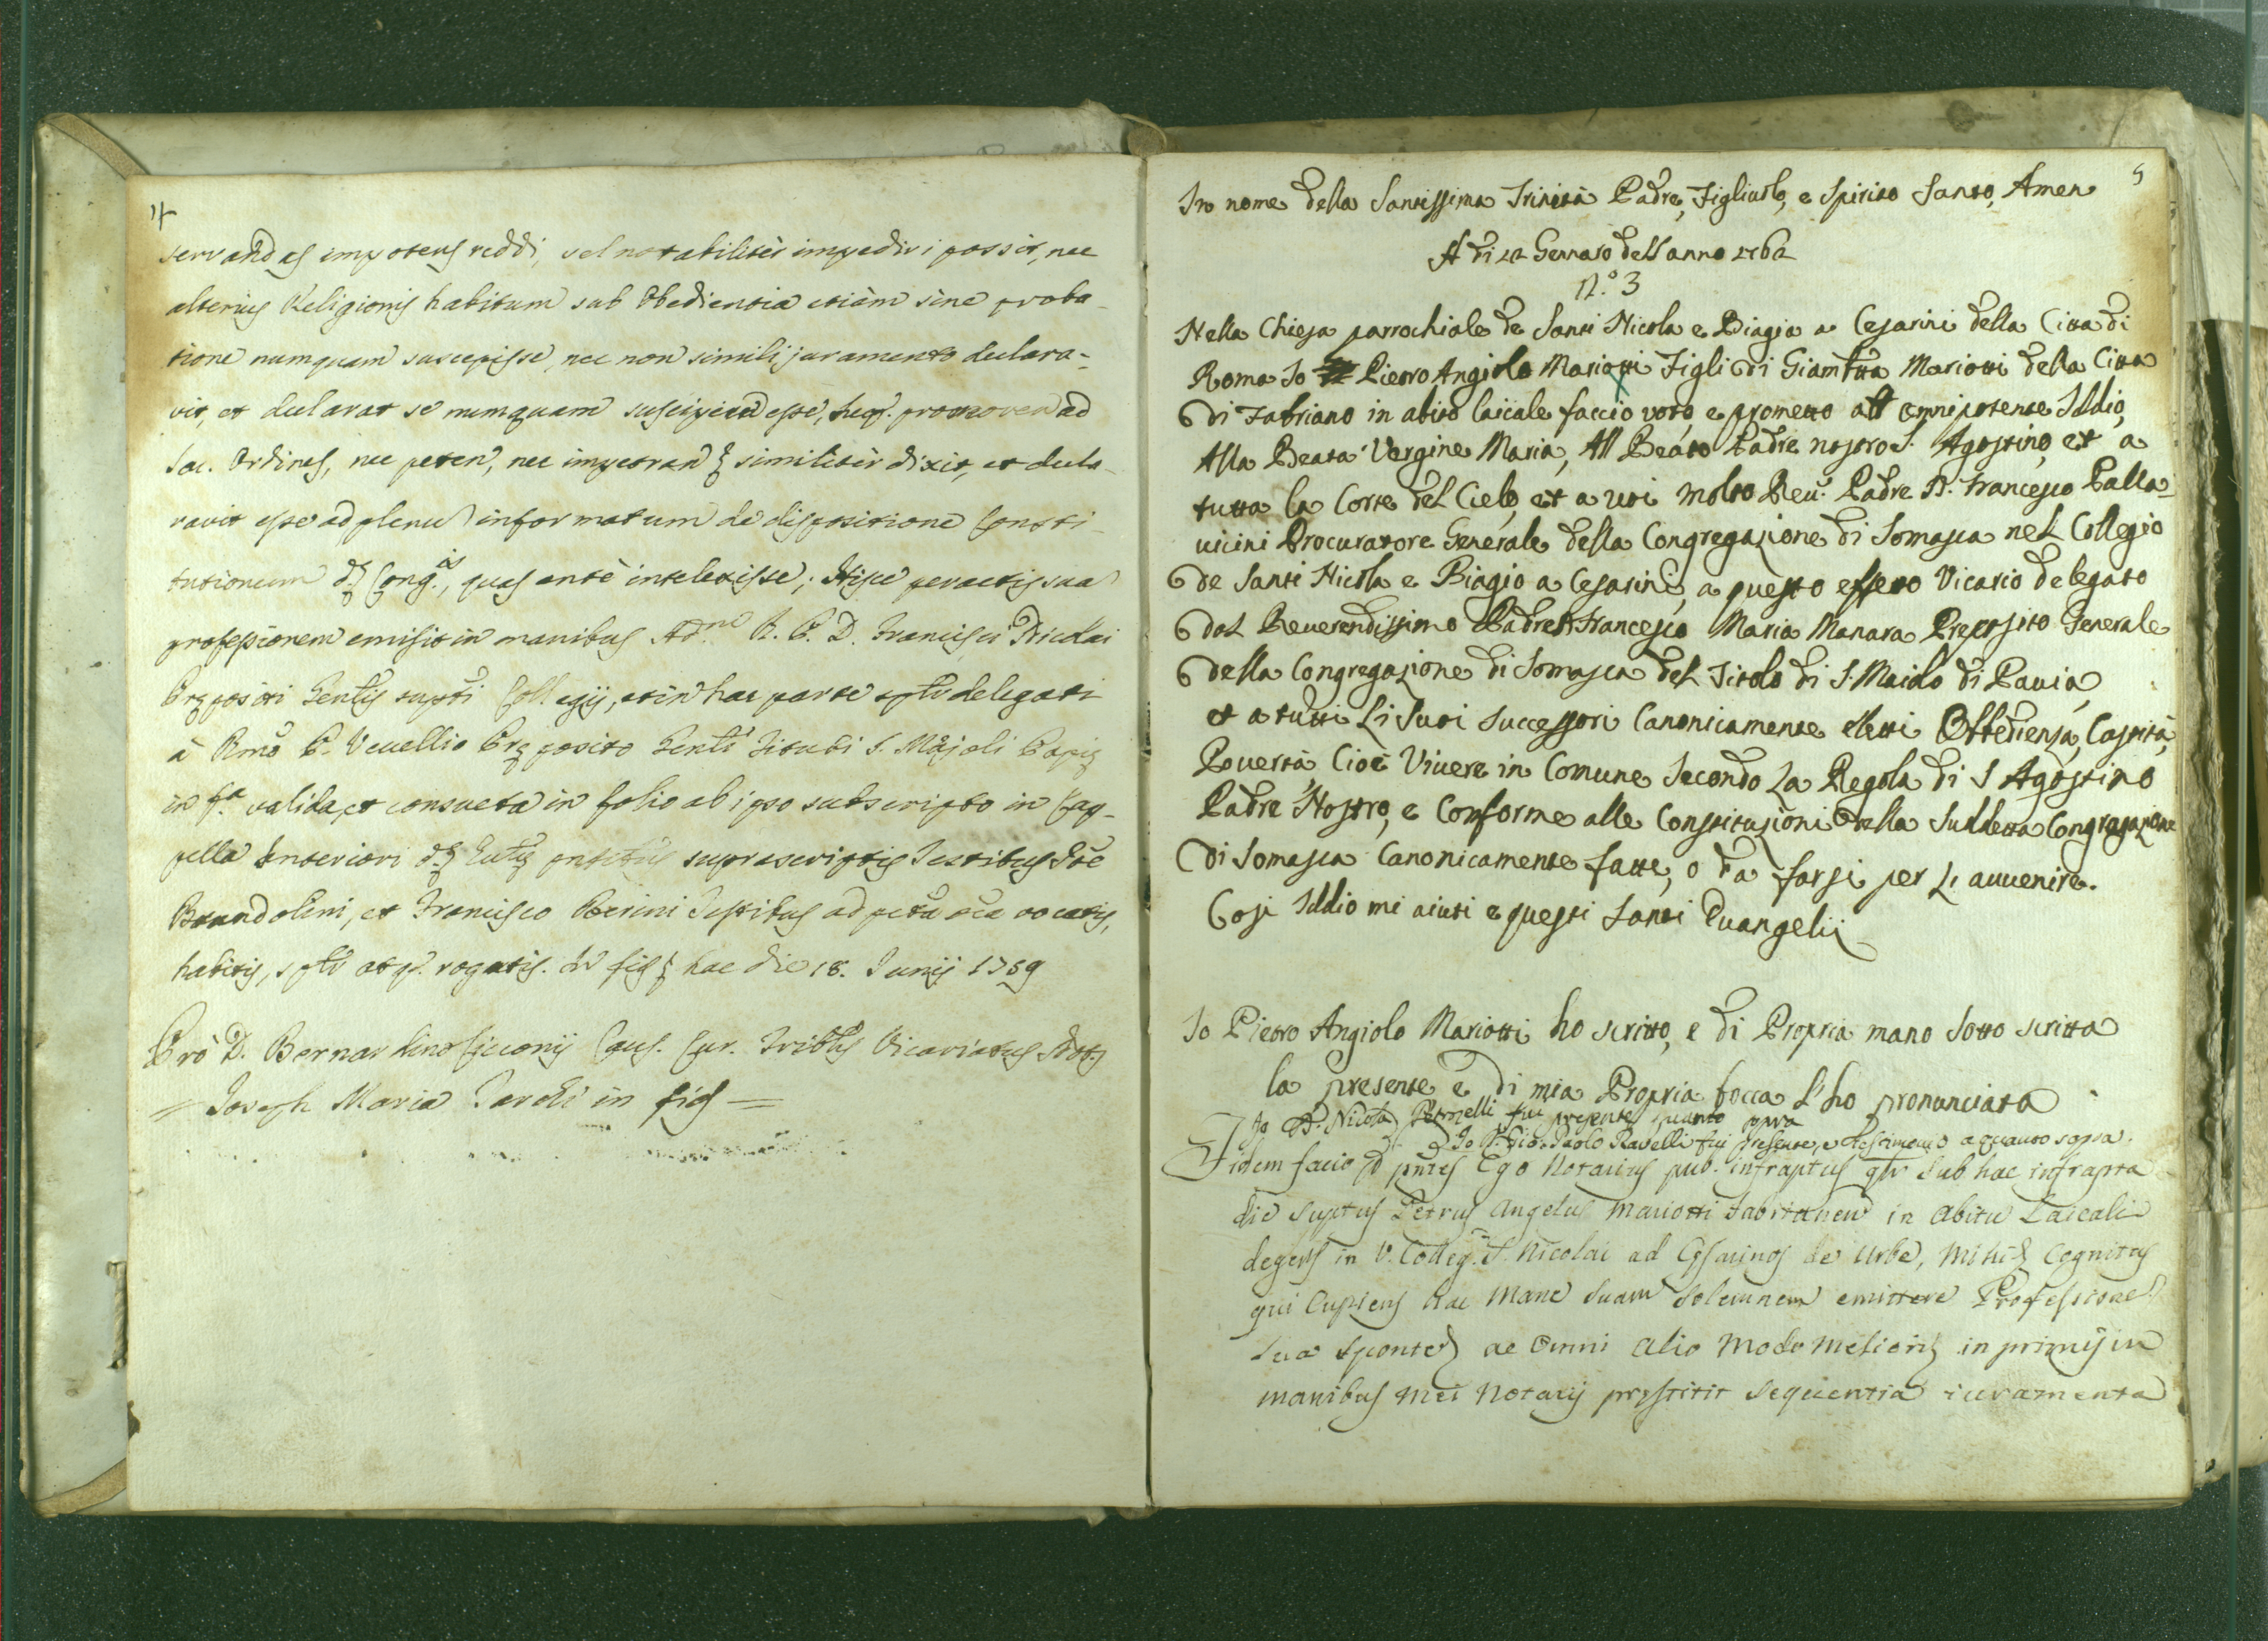 4
servandas impotens reddi, vel notabiliter impediri possit, nec
alterius Religionis habitum sub Obedientia etiam sine proba-
tione numquam suscepisse, nec non simili juramento declara-
vit, et declarat se numquam suscipiend esse, neq. promovend ad
Sac. Ordines, nec peten, nec impetran similiter dixit, et decla-
ravit esse ad plenu informatum de dispositione Consti-
tutionum Cong.is, quas ante intelexisse; Hisce peractis sua
professionem emisit in manibus Ad. R. P. D. Francisci Nicolai
Præpositi Gentis supti Collegij, et in hac parte splr delegati
à Rmo P. Vevellio Præposito Gentli Tituli S. Majoli Papiæ
in f.a valida, et consueta in folio ab ipso subscripto in Cap-
pella Interiori suprascriptis Testibus
Brandolini, et Francisco Oberini Testibus ad vocatis,
habitis, splr atq. rogatis. In fid hac die 18. Junij 1759
Pro D. Bernardino Cicconij Caus. Cur. Triblis Vicariatus Not.
= Joseph Maria in fid =
5
In nome della Santissima Trinità Padre, Figliuolo, e Spirito Santo, Amen
A di 12 Gennaro dell anno 1762
N.° 3
Nella Chiesa parrochiale de Santi Nicola e Biagio a Cesarini della Citta di
Roma Io Pietro Angiolo Mariotti Figli di Giambtta Mariotti della Citta
di Fabriano in abito laicale faccio voto, e prometto all omnipotente Iddio,
Alla Beata Vergine Maria, All Beato Padre nostro S. Agostino, et a
tutta la Corte del Cielo, et a voi Molto Reu. Padre D. Francesco Palla-
uicini Procuratore Generale della Congregazione di Somasca nel Collegio
de Santi Nicola e Biagio a Cesarini, a questo effetto Vicario delegato
dal Reuerendissimo Padre D. Francesco Maria Manara Preposito Generale
della Congregazione di Somasca del Titolo di S. Maiolo di Pauia,
et a tutti Li Suoi Successori Canonicamente eletti Obbedienza, Castità,
Pouertà, Cioè Viuere in Comune Secondo La Regola di S Agostino
Padre Nostro, e Conforme alle Constituzioni della Suddetta Congregazione
di Somasca Canonicamente fatte, o da farsi per L auuenire.
Cosi Iddio mi aiuti e questi Santi Euangelij
Io Pietro Angiolo Mariotti ho scritto, e di Propria mano Sotto scritta
la presente e di mia Propria bocca l'ho pronunciata
Io D. Nicola Petronelli fui presente quanto sopra
Io D. Gio: Paolo Ravelli fui presente, e testimonio a quanto sopra.
Fidem facio Ego Notarius pub. infraptus qlr Sub hac infrapta
die Suptus Petrus Angelus Mariotti Fabrianen in Abitu Laicali
degens in V. Colleg. S. Nicolai ad Cæsarinos de Urbe, Mihi Cognitus
qui Cupiens hac Mane Suam Solemnem emittere Professione
Sua Sponte ac Omni Alio Modo Meliori in primis in
manibus Mei Notarij præstitit Sequentia iuramenta